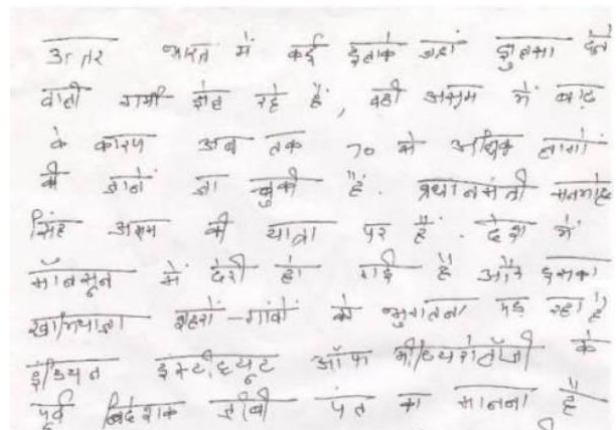 उत्तर भारत में कई इलाके जहां झुलसा देने
वाली गर्मी झेल रहे हैं, वही असम में बाढ़
के कारण अब तक 70 से अधिक लोगों
की जानें जा चुकी हैं. प्रधानमंत्री मनमोहन
सिंह असम की यात्रा पर हैं. देश में
मॉनसून में देरी हो गई है और इसका
खामियाजा शहरों-गांवों को भुगतना पड़ रहा है
इंडियन इंस्टीट्यूट ऑफ मीट्यरोलॉजी के
पूर्व निदेशक जीबी पंत का मानना है